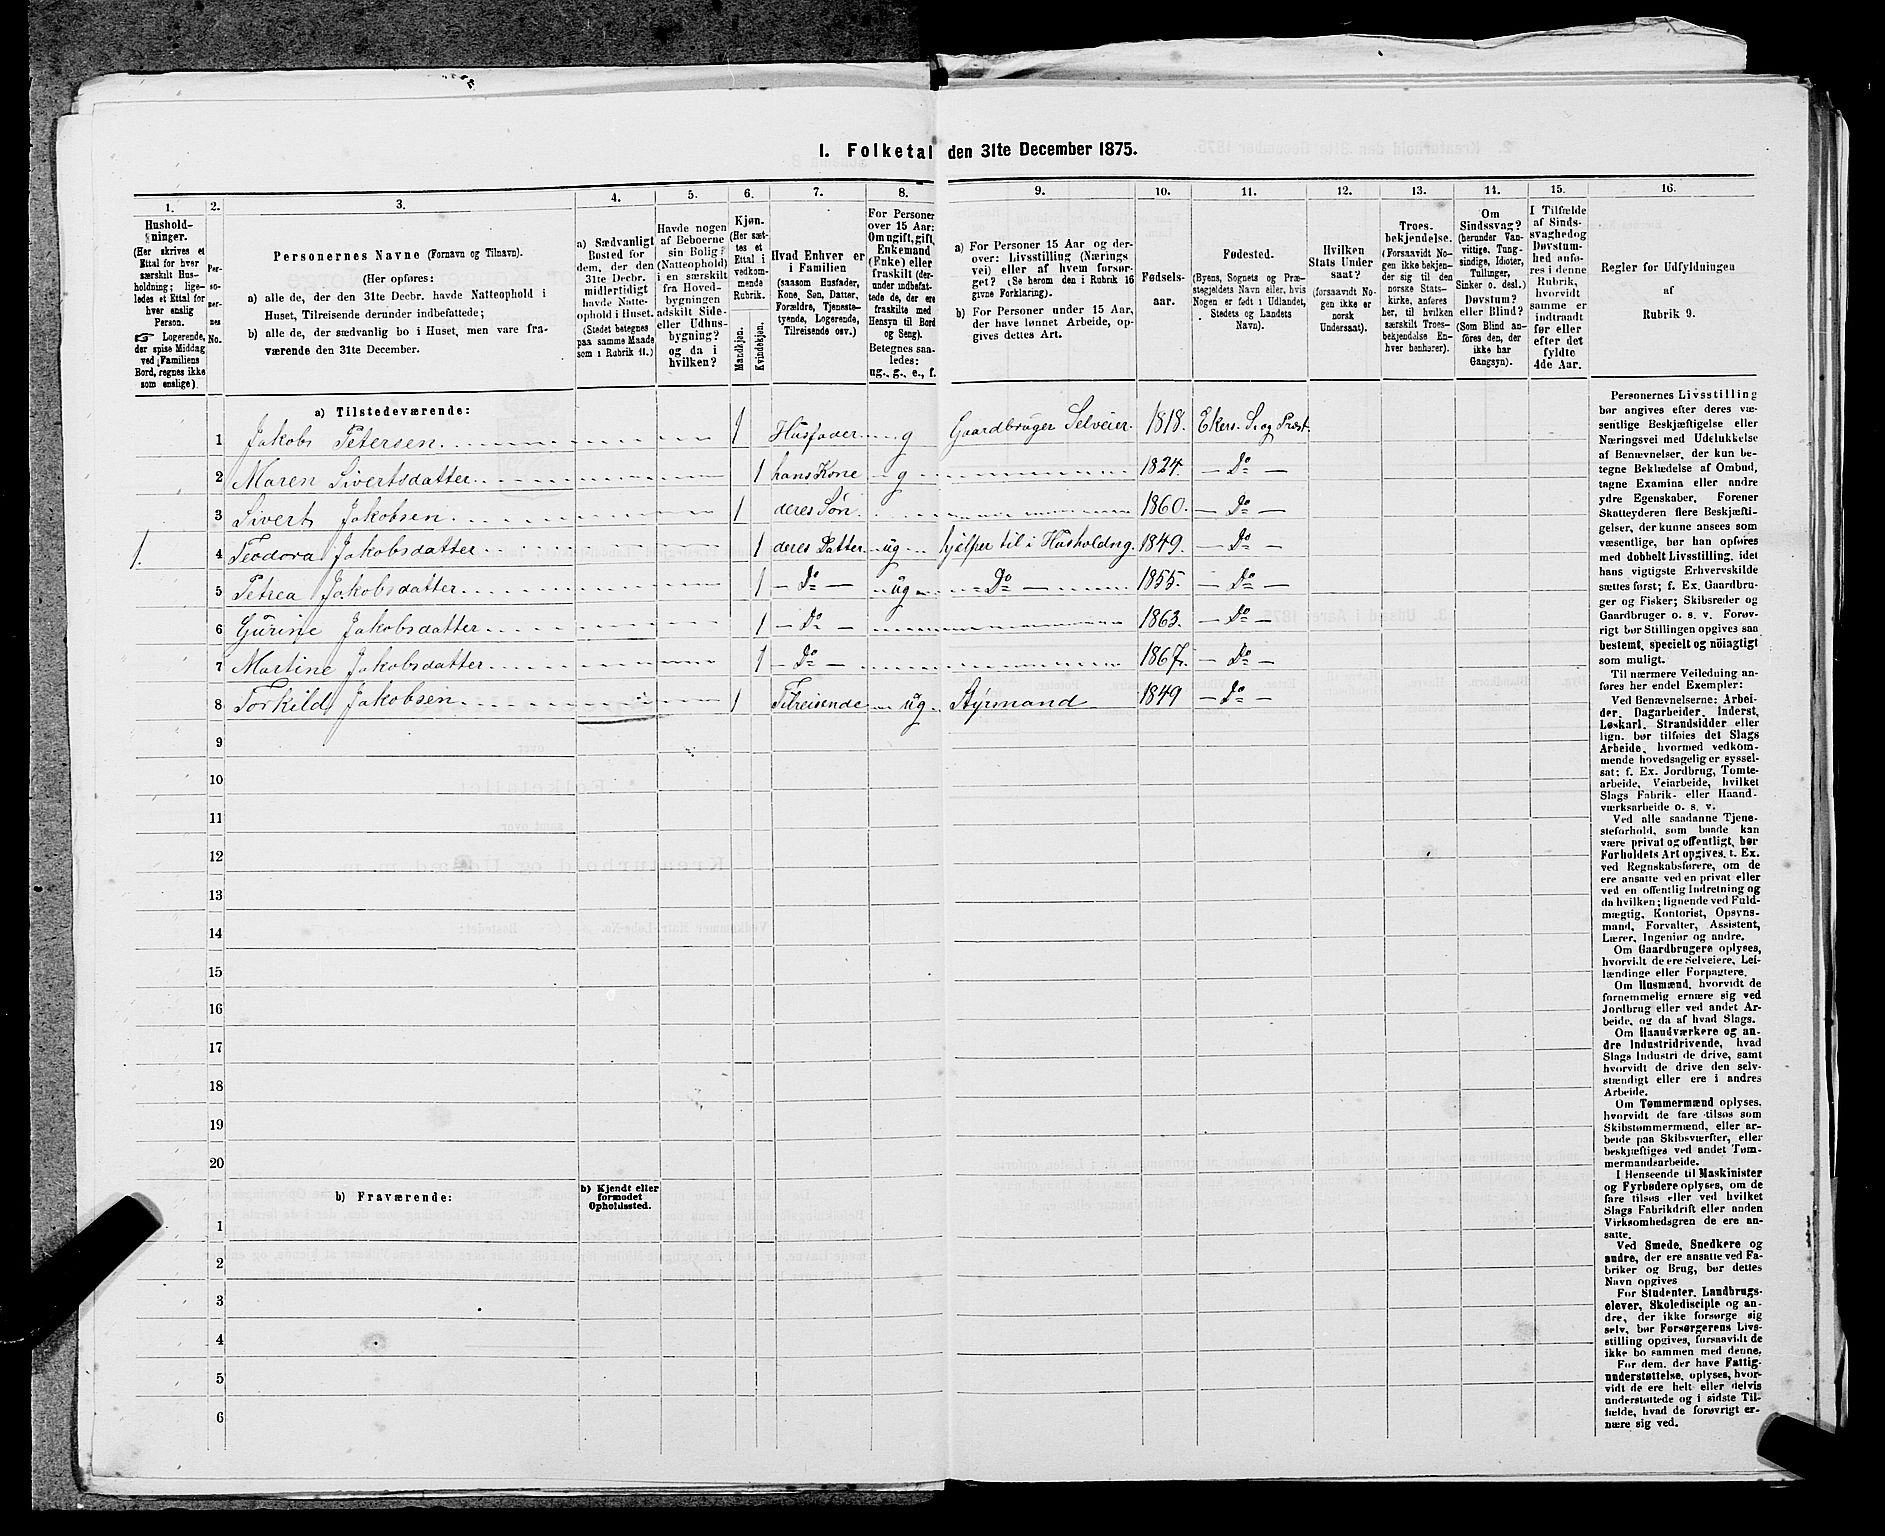 I. Folketal den 31te December 1875.
1.
Hushold-
ninger.
(Her skrives et
Ettal for hver
særskilt Hus-
holdning; lige-
ledes et Ettal for
hver enslig
Person.
☞ Logerende,
der spise Middag
ved Familiens
Bord, regnes ikke
som enslige).
2.
Per-
so-
ner-
nes
No.
3.
Personernes Navne (Fornavn og Tilnavn).
(Her opføres:
a) alle de, der den 31te Decbr. havde Natteophold i
Huset, Tilreisende derunder indbefattede;
b) alle de, der sædvanlig bo i Huset, men vare fra-
værende den 31te December.
4.
a) Sædvanligt
Bosted for
dem, der den
31te Decbr.
midlertidigt
havde Natte-
ophold i Huset.
(Stedet betegnes
paa samme Maade
som i Rubrik 11.)
5.
Havde nogen
af Beboerne
sin Bolig?
(Natteophold)
i en særskilt
fra Hoved-
bygningen
adskilt Side-
eller Udhus-
bygning?
og da i
hvilken?
6.
Kjøn.
(Her sæt-
tes et
Ettal i
vedkom-
mende
Rubrik.
Mandkjøn.
Kvindekjøn.
7.
Hvad Enhver er
i Familien
(saasom Husfader,
Kone, Søn, Datter,
Forældre, Tjeneste-
tyende, Logerende,
Tilreisende osv.)
8.
For Personer
over 15 Aar:
Om ugift, gift,
Enkemand
(Enke) eller
fraskilt (der-
under indbefat-
tede de, der ere
fraskilte med
Hensyn til Bord
og Seng).
Betegnes saa-
ledes:
ug., g., e., f.
9.
a) For Personer 15 Aar og der-
over: Livsstilling (Nærings
vei) eller af hvem forsør-
get? (Se herom den i Rubrik 16
givne Forklaring).
b) For Personer under 15 Aar,
der have lønnet Arbeide, op-
gives dettes Art.
10.
Fødsels-
aar.
11.
Fødested.
(Byens, Sognets og Præ-
stegjeldets Navn eller, hvis
Nogen er født i Udlandet,
Stedets og Landets
Navn).
12.
Hvilken
Stats Under
saat?
(forsaavidt No-
gen ikke er
norsk
Undersaat).
13.
Troes-
bekjendelse.
(Forsaavidt No-
gen ikke bekjen-
der sig til den
norske Stats-
kirke, anføres
her, til hvilken
særskilt Troes-
bekjendelse En-
hver henhører).
14.
Om
Sindssvag?
(herunder Van-
vittige, Tung-
sindige, Idioter,
Tullinger,
Sinker o. desl.)
Døvstum?
eller Blind?
(Som Blind an-
føres den, der
ikke har
Gangsyn).
15.
I Tilfælde
af Sinds-
svaghed og
Døvstum-
hed anfø-
res i denne
Rubrik,
hvorvidt
samme er
indtraadt
før eller
efter det
fyldte
4de Aar.
16.
Regler for Udfyldningen
af
Rubrik 9.
a) Tilstedeværende:
1 Jakobs Petersen 1 Husfader g Gaardbruger Selveier 1818. Ekers. S. og Præst.
2 Maren Sivertsdatter 1 hans Kone g 1824. — Do —
3 Sivert Jakobsen 1 deres Søn 1860. — Do —
1. 4 Teodora Jakobsdatter 1 deres Datter ug hjelper til i Husholdng. 1849. — Do —
5 Petrea Jakobsdatter 1 — Do — ug — Do — 1855. — Do —
6 Gurine Jakobsdatter 1 — Do — 1863. — Do —
7 Martine Jakobsdatter 1 — Do — 1867. — Do —
8 Torkild Jakobsen 1 Tilreisende ug Styrmand 1849 — Do —
9
10
11
12
13
14
15
16
17
18
19
20
b) Fraværende:
b) Kjendt eller
formodet
Opholdssted.
1
2
3
4
5
6
Personernes Livsstilling
bør angives efter deres væ-
sentlige Beskjæftigelse eller
Næringsvei med Udelukkelse
af Benævnelser, der kun be-
tegne Beklædelse af Ombud,
tagne Examina eller andre
ydre Egenskaber. Forener
Skatteyderen flere Beskjæfti-
gelser, der kunne ansees som
væsentlige, bør han opføres
med dobbelt Livsstilling, idet
hans vigtigste Erhvervskilde
sættes først; f. Ex. Gaardbru-
ger og Fisker; Skibsreder og
Gaardbruger o. s. v. Forøv-
rigt bør Stillingen opgives saa
bestemt, specielt og nöiagtigt
som muligt.
Til nærmere Veiledning an-
føres her endel Exempler:
Ved Benævnelserne: Arbei-
der, Dagarbeider, Inderst,
Løskarl, Strandsidder eller
lign. bør tilføies det Slags
Arbeide, hvormed vedkom-
mende hovedsagelig er syssel-
sat; f. Ex. Jordbrug, Tomte-
arbeide, Veiarbeide, hvilket
Slags Fabrik- eller Haand-
værksarbeide o. s. v.
Ved alle saadanne Tjene-
steforhold, som baade kan
være privat og offentligt, bør
Forholdets Art opgives, t. Ex.
ved Regnskabsførere, om de
ere ansatte ved en privat eller
ved en offentlig Indretning og
da hvilken; lignende ved Fuld-
mægtig, Kontorist, Opsyns-
mand, Forvalter, Assistent,
Lærer, Ingeniør og andre.
Om Gaardbrugere oplyses,
hvorvidt de ere Selveiere, Lei-
lændinge eller Forpagtere.
Om Husmænd, hvorvidt de
fornemmelig ernære sig ved
Jordbrug eller ved andet Ar-
beide, og da af hvad Slags.
Om Haandværkere og an-
dre Industridrivende, hvad
Slags Industri de drive, samt
hvorvidt de drive den selv-
stændigt eller ere i andres
Arbeide.
Om Tømmermænd oplyses,
hvorvidt de fare tilsøs som
Skibstømmermænd, eller ar-
beide paa Skibsværfter, eller
beskjæftiges ved andet Tøm-
mermandsarbeide.
I Henseende til Maskinister
og Fyrbødere oplyses, om de
fare tilsøs eller ved hvilket
Slags Fabrikdrift eller anden
Virksomhedsgren de ere an-
satte.
Ved Smede, Snedkere og
andre, der ere ansatte ved Fa-
briker og Brug, bør dettes
Navn opgives
For Studenter, Landbrugs-
elever, Skoledisciple og an-
dre, der ikke forsørge sig
selv, bør Forsørgerens Livs-
stilling opgives, forsaavidt de
ikke bo sammen med denne.
For dem, der have Fattig-
understøttelse, oplyses, hvor-
vidt de ere helt eller delvis
understøttede og i sidste Til-
fælde, hvad de forøvrigt er-
nære sig ved.